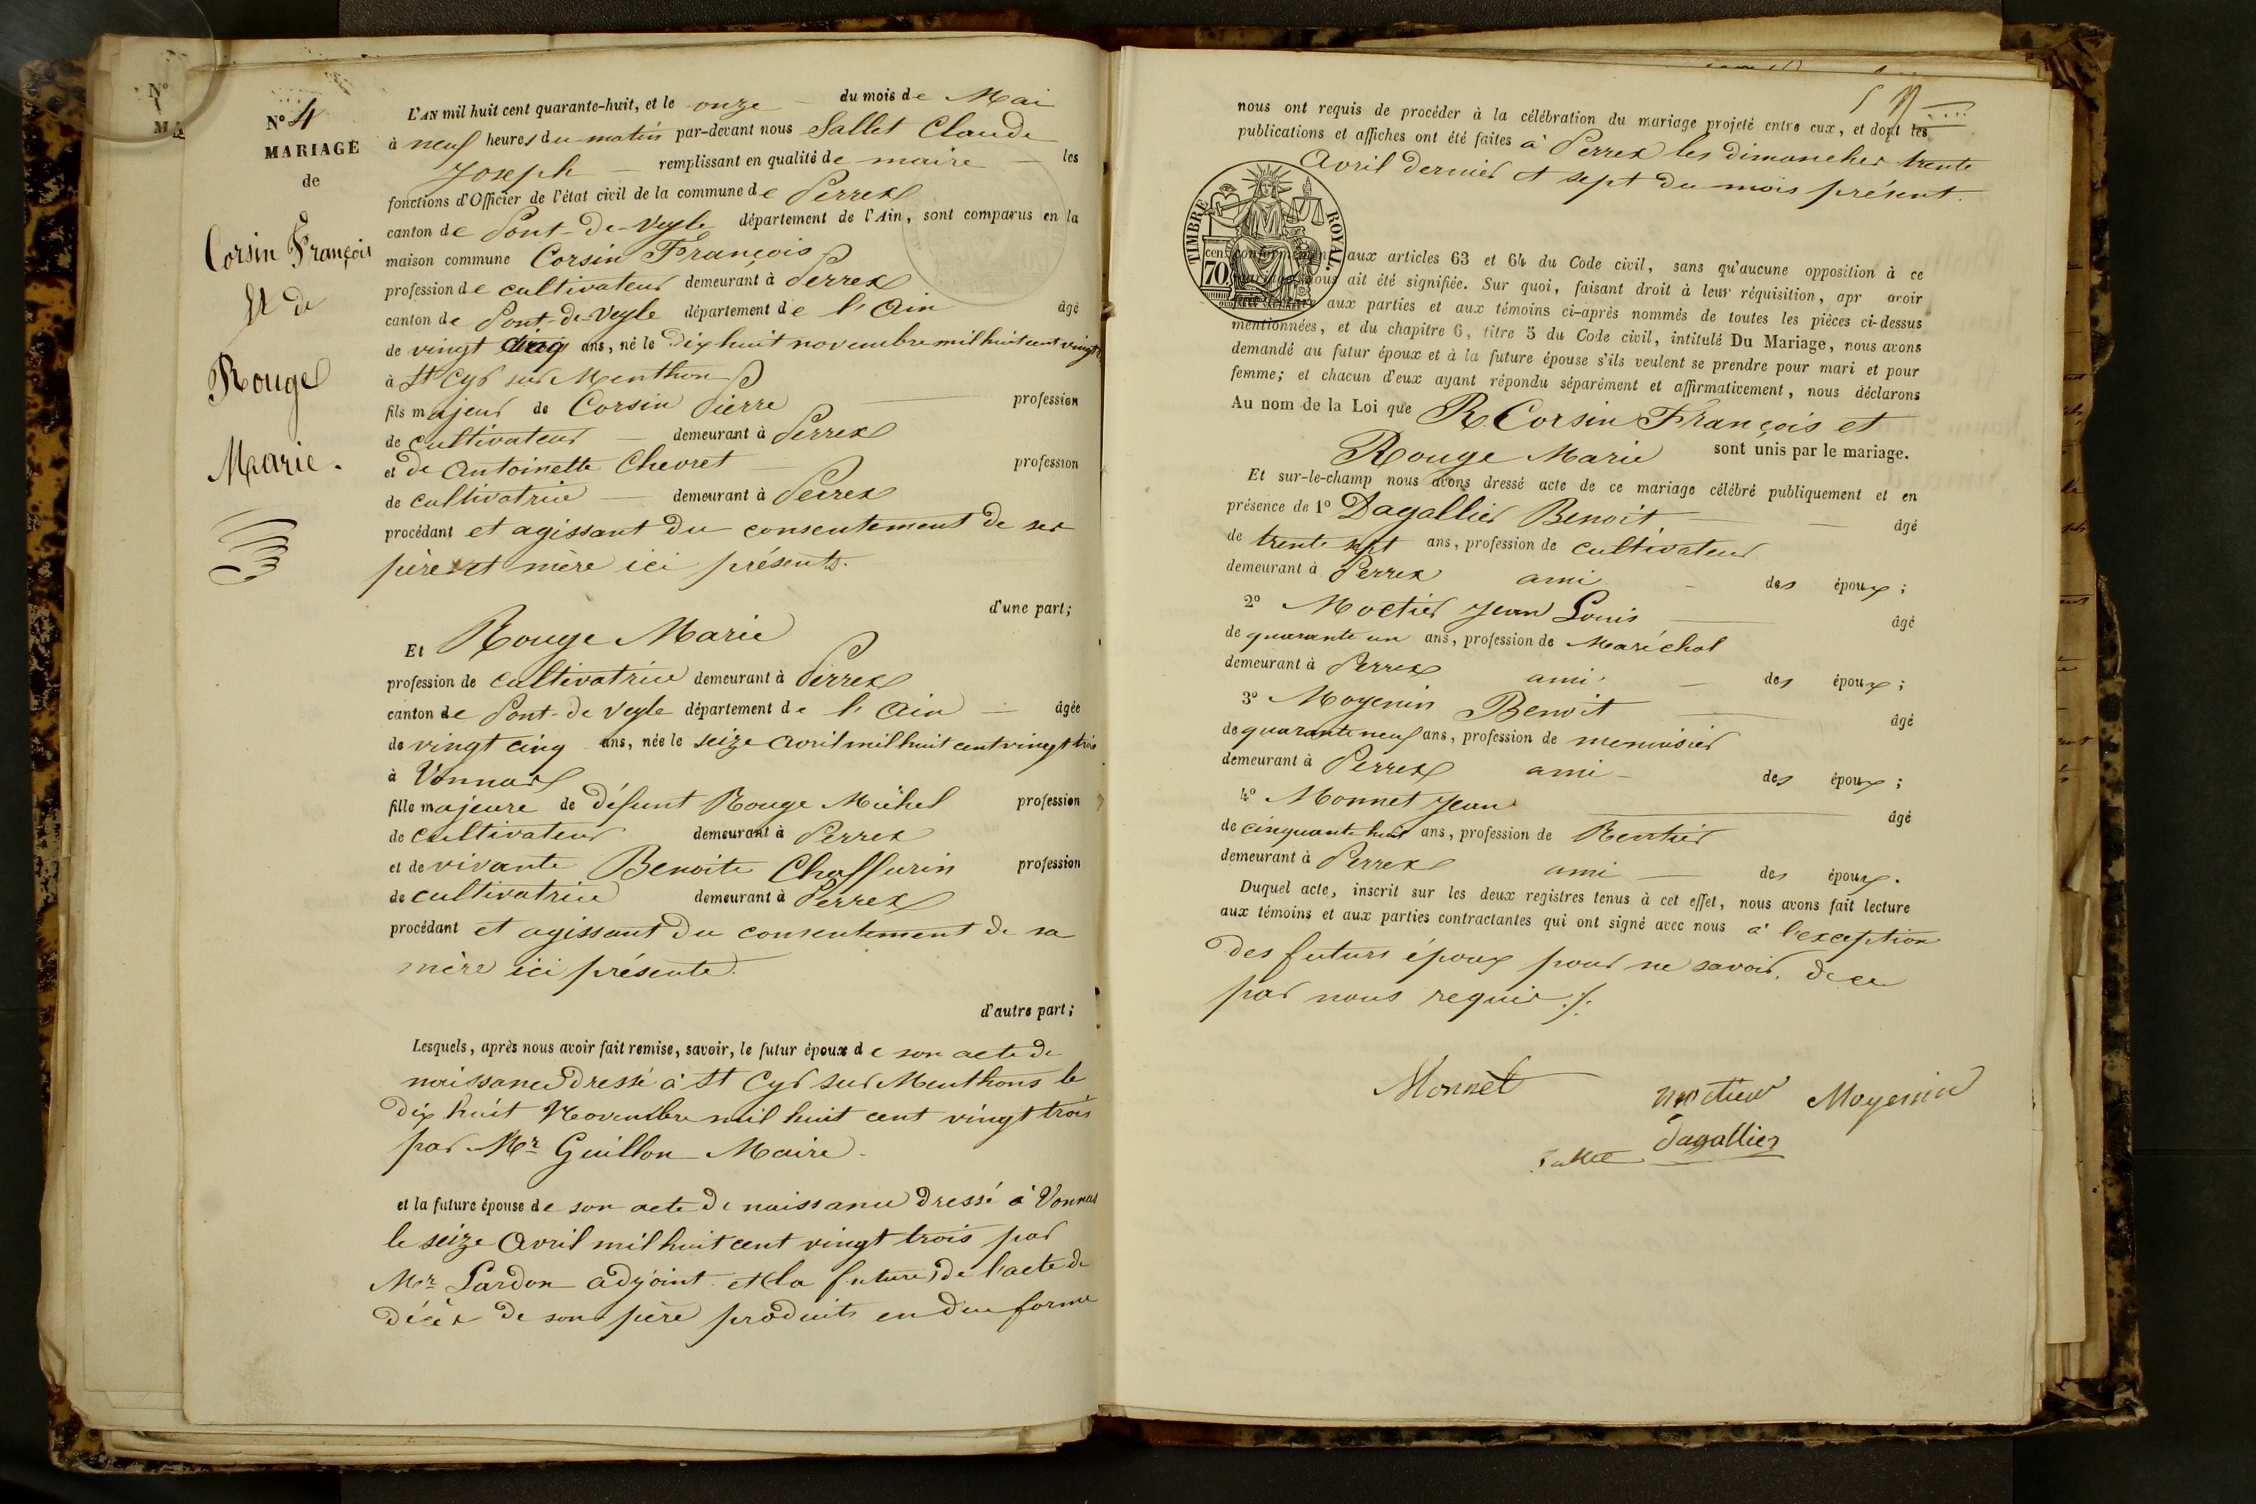 N° 4
MARIAGE
de
Corsin François
Et de
Rouge
Marie.
L'AN mil huit cent quarante-huit, et le onze du mois de Mai
à neuf heures du matin par-devant nous Sallet Claude
Joseph remplissant en qualité de maire les
fonctions d'Officier de l'état civil de la commune de Perrex
canton de Pont-de-Veyle département de l'Ain, sont comparus en la
maison commune Corsin François
profession de cultivateur demeurant à Perrex
canton de Pont-de-Veyle département de l'Ain âgé
de vingt cinq ans, né le dix huit novembre mil huit cent vingt
à St Cyr sur Menthon
fils majeur de Corsin Pierre profession
de cultivateur demeurant à Perrex
et de Antoinette Chevret profession
de cultivatrice demeurant à Perrex
procédant et agissant du consentement de ses
père et mère ici présents.
d'une part;
Et Rouge Marie
profession de cultivatrice demeurant à Perrex
canton de Pont-de-Veyle département de l'Ain âgée
de vingt cinq ans, née le seize avril mil huit cent vingt trois
à Vonnas
fille majeure de défunt Rouge Michel profession
de cultivateur demeurant à Perrex
et de vivante Benoite Chaffurin profession
de cultivatrice demeurant à Perrex
procédant et agissant du consentement de sa
mère ici présente.
d'autre part;
Lesquels, après nous avoir fait remise, savoir, le futur époux de son acte de
naissance dressé à St Cyr sur Menthons le
dix huit Novembre mil huit cent vingt trois
par Mr Guillon Maire.
et la future épouse de son acte de naissance dressé à Vonnas
le seize Avril mil huit cent vingt trois par
Mr Lardon adjoint et la future de l'acte de
décès de son père produits en due forme
nous ont requis de procéder à la célébration du mariage projeté entre eux, et dont les
publications et affiches ont été faites à Perrex les dimanches trente
Avril dernier et sept du mois présent.
TIMBRE ROYAL.
70 cen
conformément aux articles 63 et 64 du Code civil, sans qu'aucune opposition à ce
mariage nous ait été signifiée. Sur quoi, faisant droit à leur réquisition, apr avoir
fait lecture aux parties et aux témoins ci-après nommés de toutes les pièces ci-dessus
mentionnées, et du chapitre 6, titre 5 du Code civil, intitulé Du Mariage, nous avons
demandé au futur époux et à la future épouse s'ils veulent se prendre pour mari et pour
femme; et chacun d'eux ayant répondu séparément et affirmativement, nous déclarons
Au nom de la Loi que R. Corsin François et
Rouge Marie sont unis par le mariage.
Et sur-le-champ nous avons dressé acte de ce mariage célébré publiquement et en
présence de 1° Dagallier Benoit âgé
de trente sept ans, profession de cultivateur
demeurant à Perrex ami des époux;
2° Moctier Jean Louis âgé
de quarante un ans, profession de Maréchal
demeurant à Perrex ami des époux;
3° Moyenin Benoit âgé
de quarante neuf ans, profession de menuisier
demeurant à Perrex ami des époux;
4° Monnet Jean âgé
de cinquante huit ans, profession de Rentier
demeurant à Perrex ami des époux.
Duquel acte, inscrit sur les deux registres tenus à cet effet, nous avons fait lecture
aux témoins et aux parties contractantes qui ont signé avec nous à l'exception
des futurs époux pour ne savoir, de ce
par nous requis./.
Monnet moctier Moyenin
Sallet Dagallier